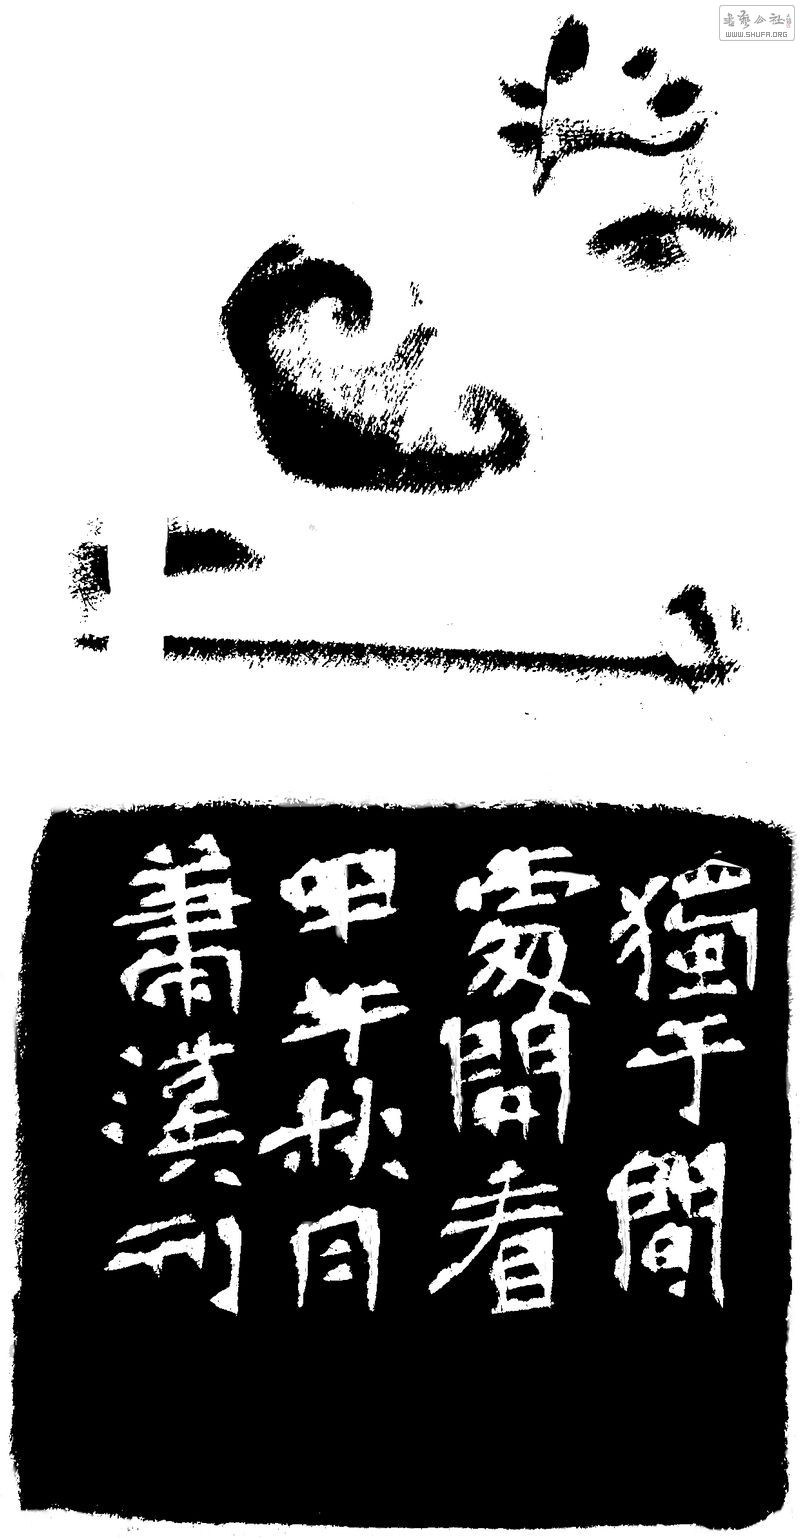 書藝公社
WWW.SHUFA.ORG
獨于閒
處閒看
甲午秋月
蕭漢刊